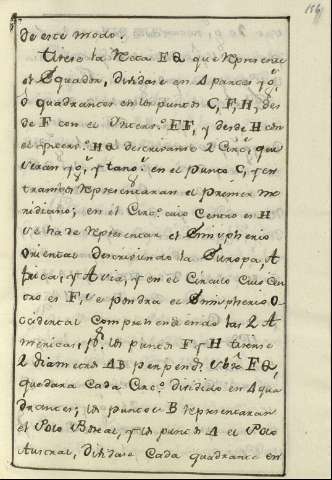 156
de este modo.
Tirese la Recta EQ que represente
el Equador, dividase en 4 partes yg.s
ó quadrantes en los puntos C, F, H, des
de F con el Interv.o EF, y desde H con
el Interv.o HQ describanse 2 Circ.s, que
serán yg.s, y tang.s en el punto C, y en
trambos representaran el primer me
ridiano; en el Circ.o cuio Centro es H
se ha de representar el Emispherio
Oriental describiendo la Europa, A
frica, y Asia, y en el Circulo cuio Cen
tro es F, se pondra el Emispherio O
ccidental comprehendiendo las 2 A
mericas; p.r los puntos F y H tirense
2 diametros AB perpend.s sobre EQ,
quedara cada Circ.o dividido en 4 qua
drantes; los puntos B representaran
el Polo Boreal, y los puntos A el Polo
Austral, dividase cada quadrante en